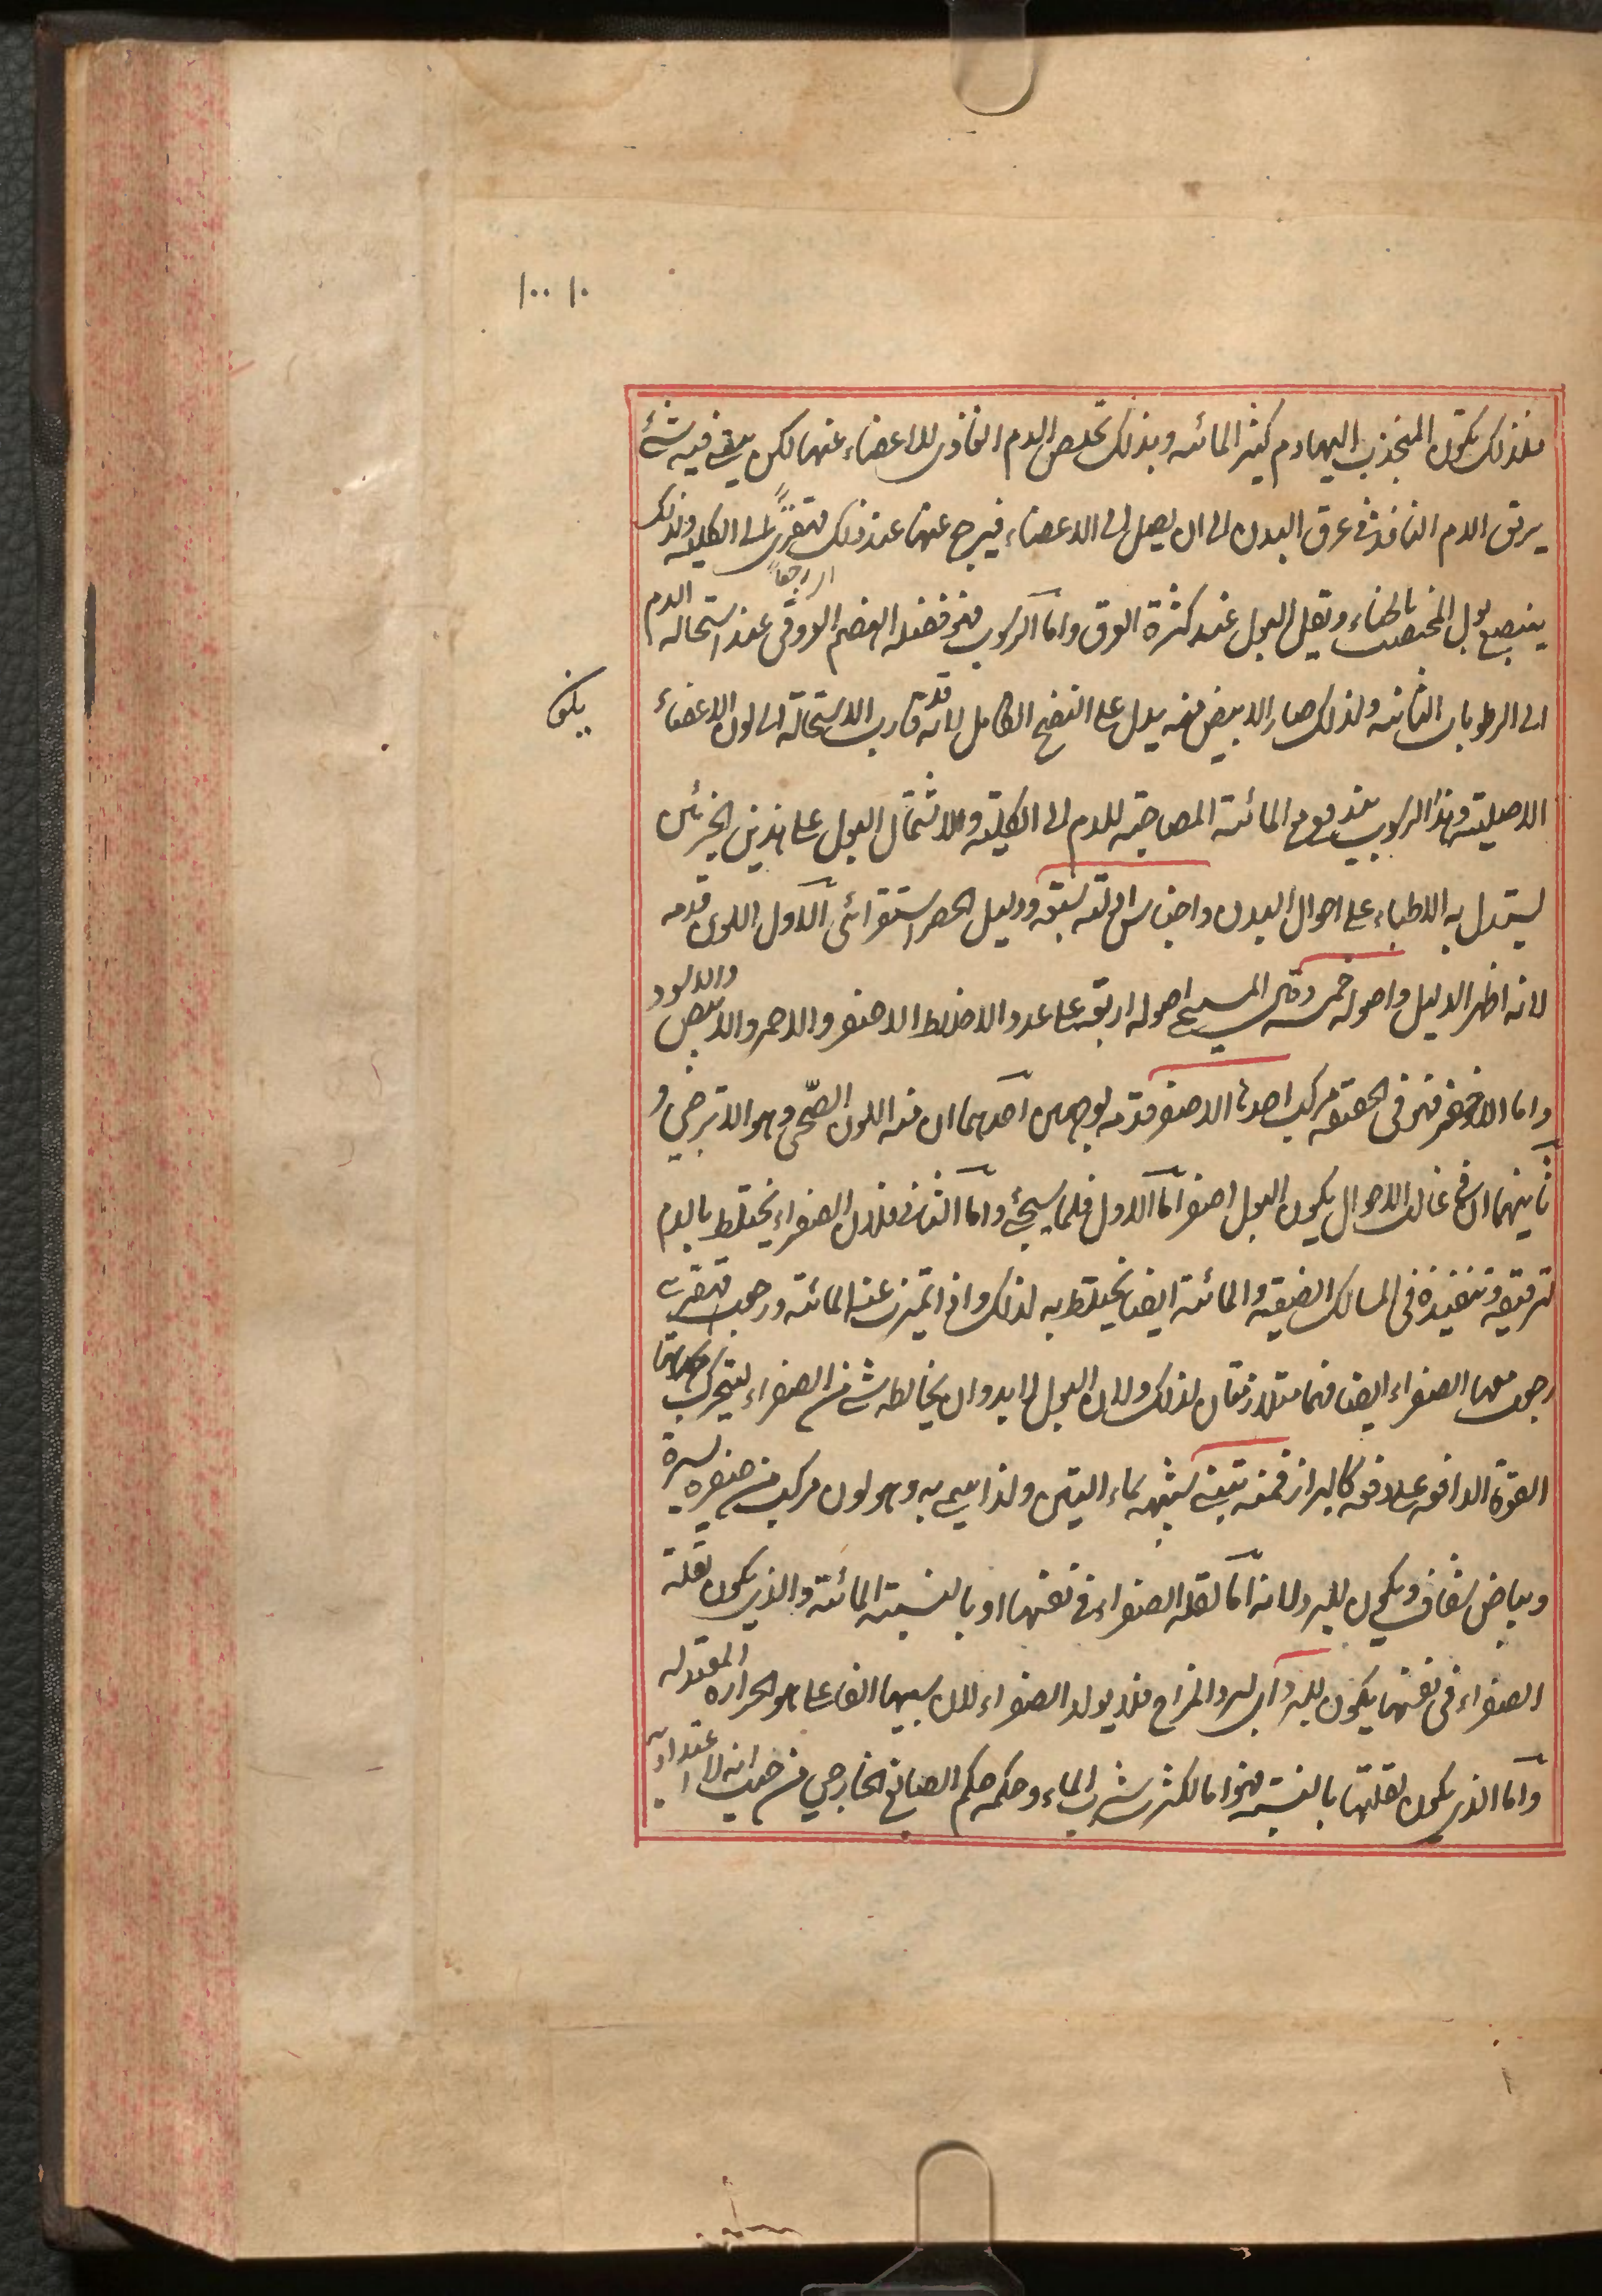 ١٠ ١٠٠
فلذلك يكون المنجذب اليهما دم كثير المائية وبذلك تخلص الدم الغاذى للاعضاء عنها لكن يبقى فيه شئ
يرقق الدم النافذ فى عرق البدن الى ان يصل الى الاعضاء فيرجع عنها عند ذلك قهقرى الى الكلية ولذلك
اى راجعا
ينصبغ بول المختضب بالحناء ويقل البول عند كثرة العرق واما الرسوب فهو فضلة الهضم العروقى عند استحالة الدم
الى الرطوبات الثانية ولذلك صار الابيض منه يدل على النضج الكامل لانه قد قارب الاستحالة الى لون الاعضاء
الاصلية وهذا الرسوب يندفع مع المائية المصاحبة للدم الى الكلية ولاشتمال البول على هذين الجزئين
يستدل به الاطباء على احوال البدن واجناس ادلته سبعة ودليل الحصر استقرائى الاول اللون قدمه
لانه اظهر الدليل واصوله خمسة وقال المسيحى اصوله اربعة على عدد الاخلاط الاصفر والاحمر والابيض والاسود
واما الاخضر فهو فى الحقيقة مركب احدها الاصفر قدمه لوجهين احدهما ان منه اللون الصحى وهو الاترجى و
ثانيهما ان فى غالب الاحوال يكون البول اصفر اما الاول فلما سيجئ واما الثانى فلان الصفراء يختلط بالدم
لترقيقه وتنفيذه فى المسالك الضيقة والمائية ايضا يختلط به لذلك واذا تميزت عنه المائية ورجعت قهقرى
رجعت معها الصفراء ايضا فهما متلازمتان لذلك ولان البول لابد وان يخالطه شئ من الصفراء ليتحرك
القوة الدافعة على دفعه كالبراز فمنه تبنى لشبهه بماء التبن ولذا سمى به وهو لون مركب من صفرة يسيرة
وبياض شفاف ويكون للبرد لانه اما لقلة الصفراء فى نفسها او بالنسبة المائية والذى يكون لقلة
الصفراء فى نفسها يكون للبرد اى لبرد المزاج فلا يولد الصفراء لان سببها الفاعلى هو الحرارة المعتدلة
واما الذى يكون لقلتها بالنسبة فهو اما لكثرة شرب الماء وحكمه حكم الصابغ الخارجى من حيث انه لا اعتداد
يكون